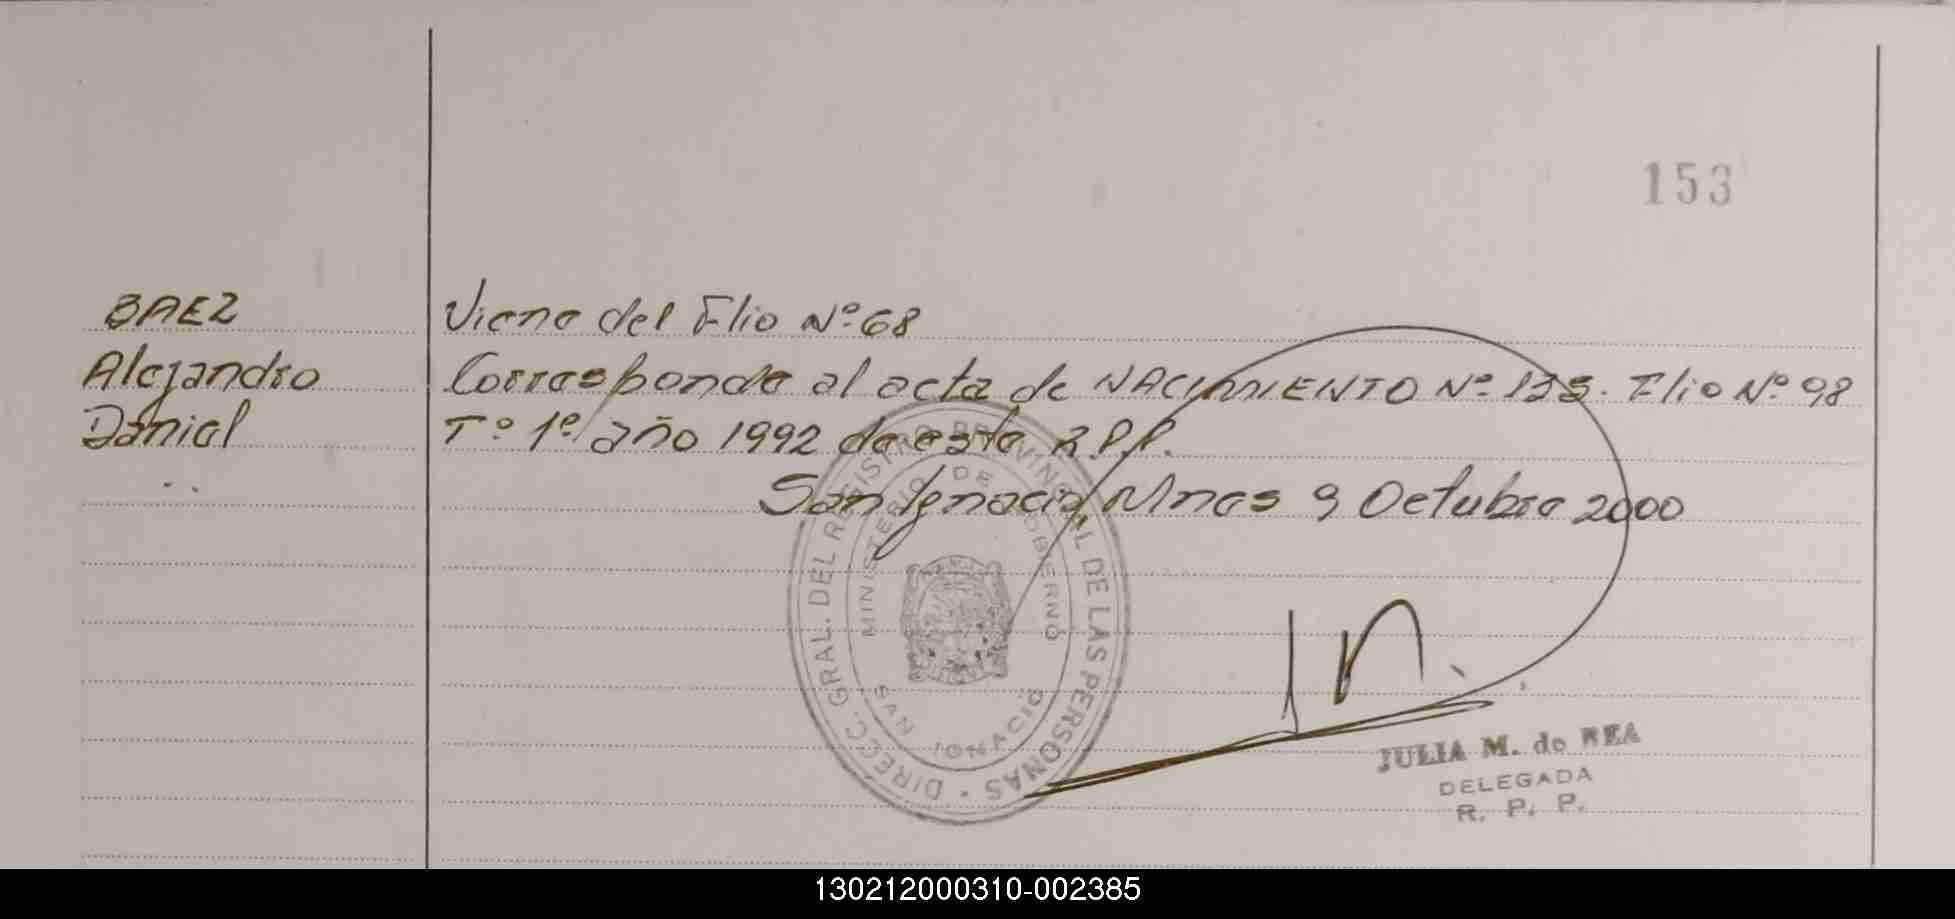 153
BAEZ
Alejandro
Daniel
Viene del Flio Nº 68
Corresponde al acta de NACIMIENTO Nº Flio Nº 98
Tº 1º año 1992 de este R.P.P.
San Ignacio, Mnes 9 Octubre 2000
DIRECC. GRAL. DEL REGISTRO PROVINCIAL DE LAS PERSONAS
MINISTERIO DE GOBIERNO
SAN IGNACIO
JULIA M. de REA
DELEGADA
R. P. P.
130212000310-002385